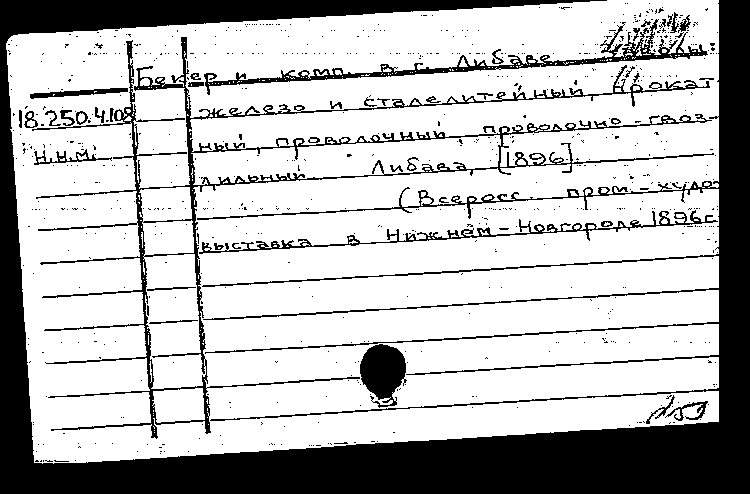 Бекер и комп. в г. Либаве.
18.250.4.108 железо и сталелитейный, прокат-
н.н.м. ный, проволочный, проволочно-гвоз-
дильный. Либава, [1896].
(Всеросс. пром.-худо-
выставка в Нижнем-Новгороде 1896г
259